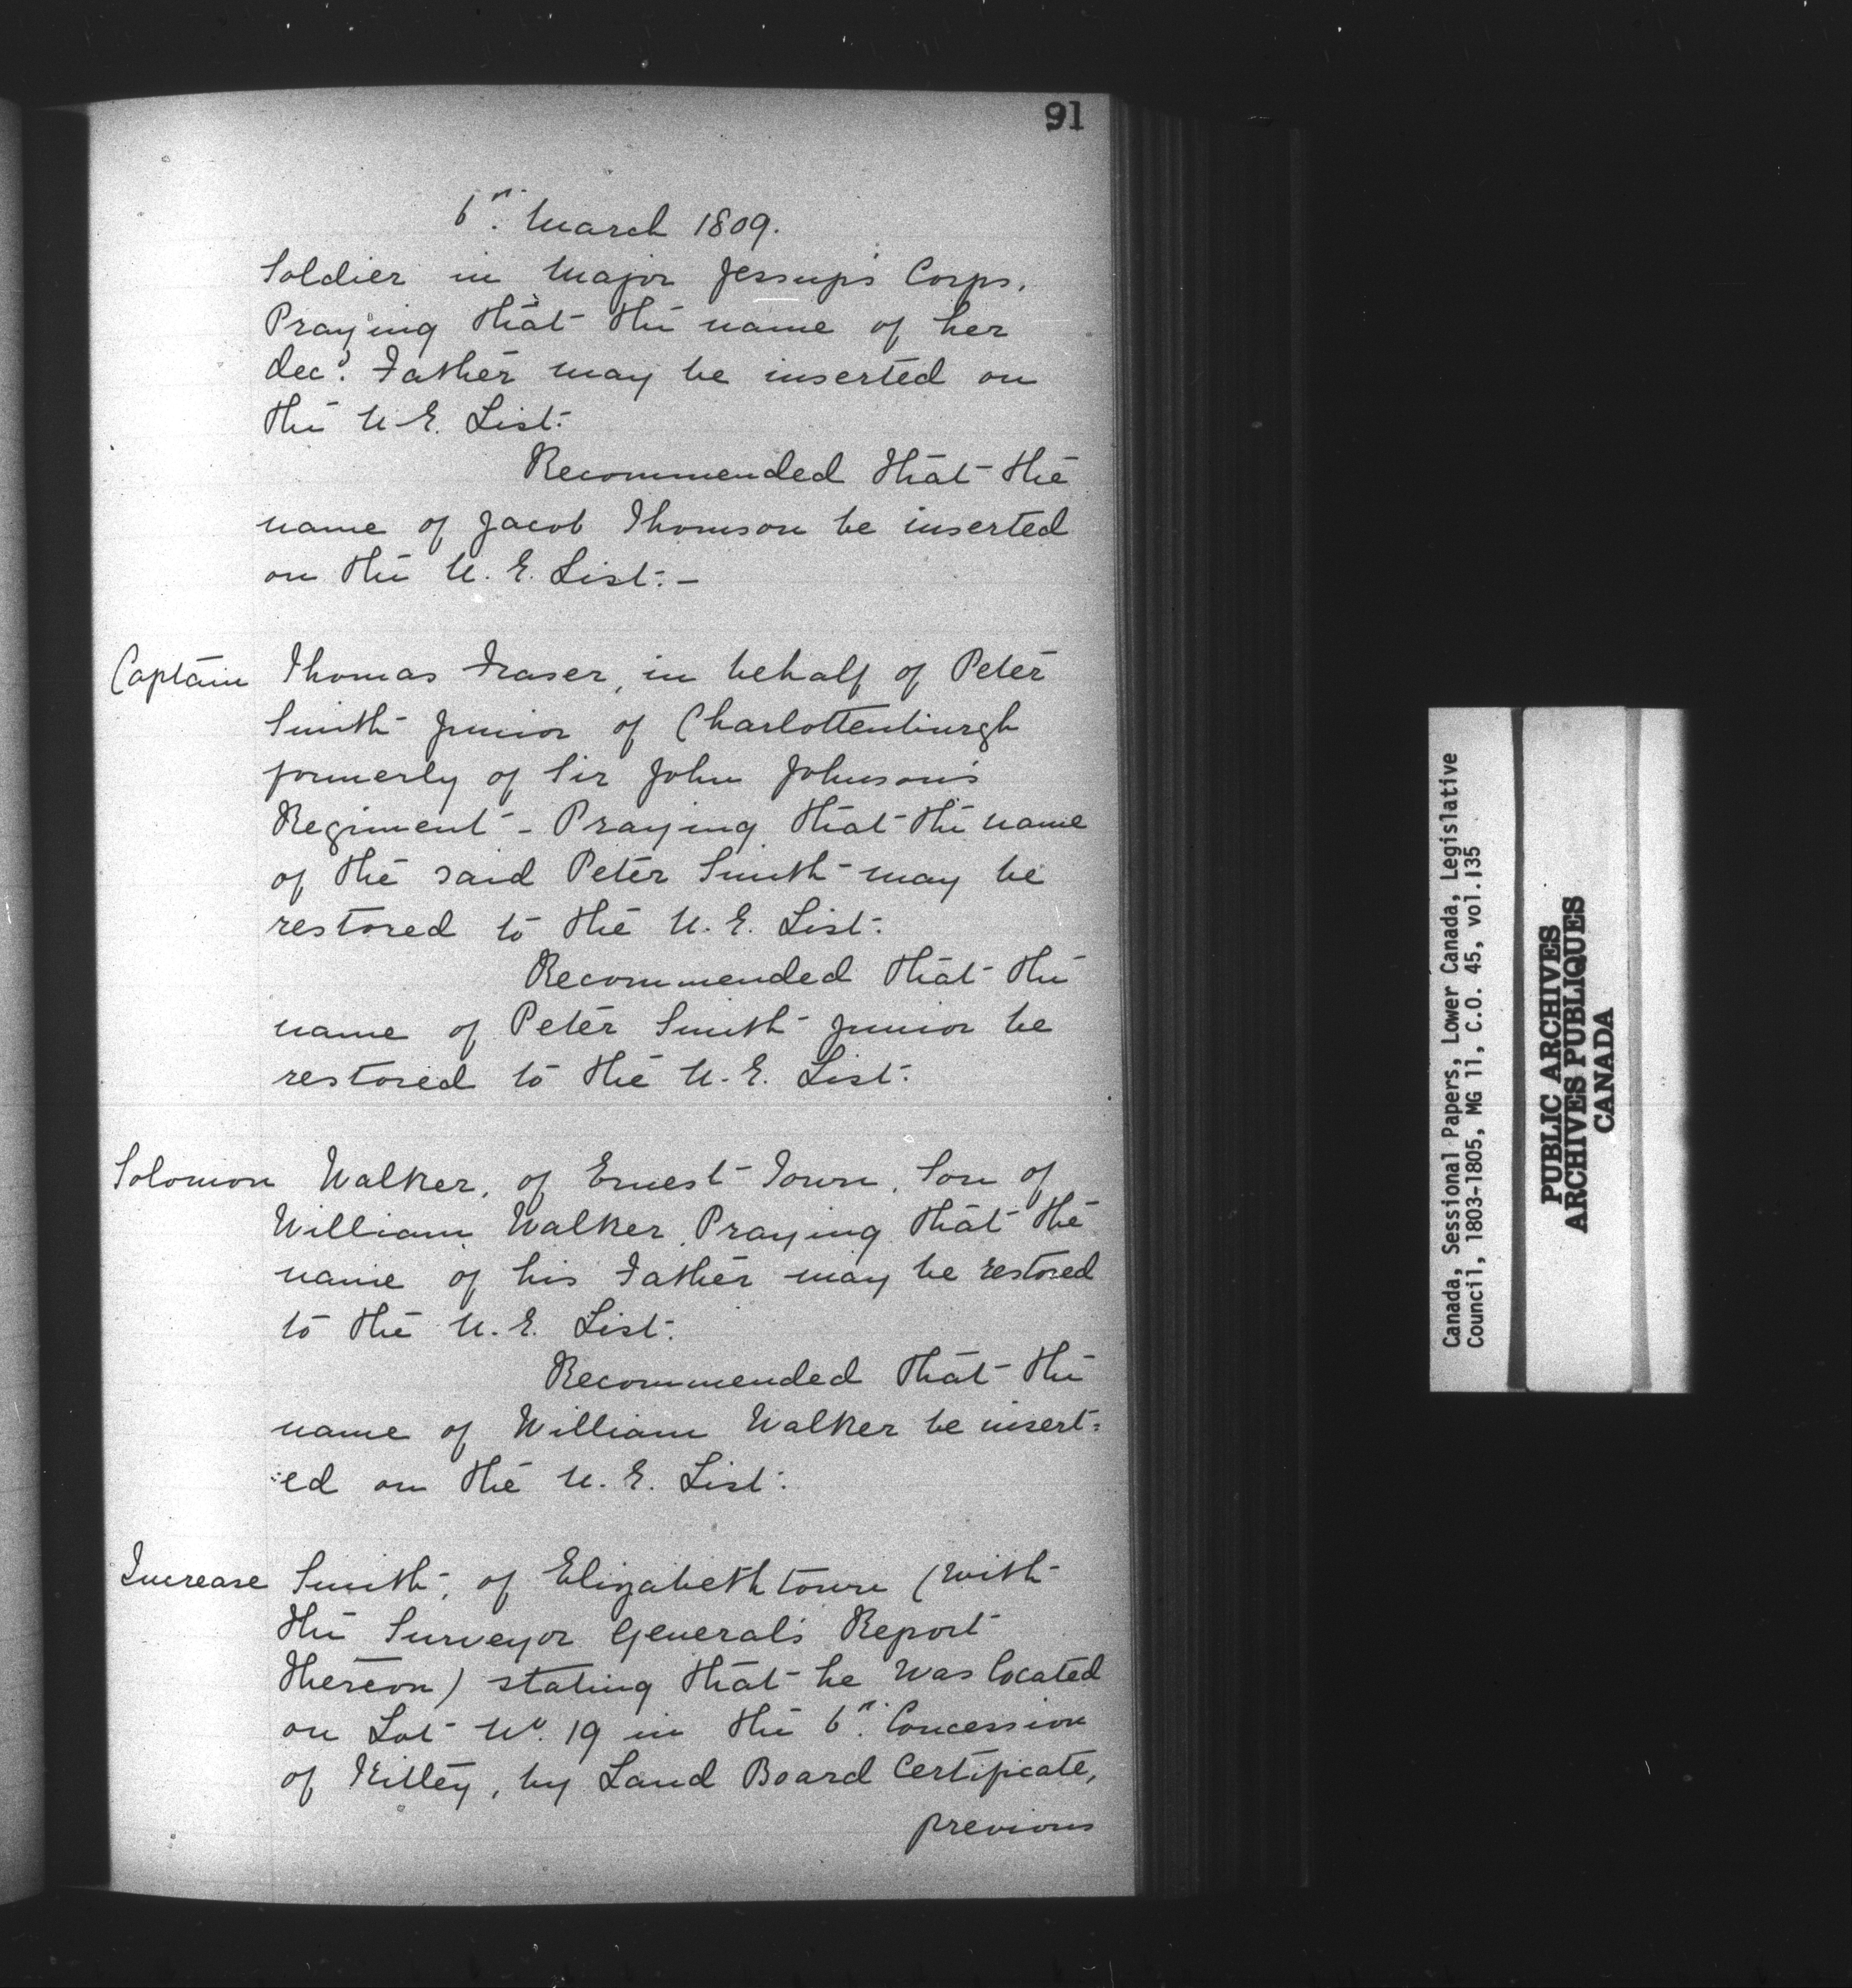 91
6th. March 1809.
Soldier in Major Jessup's Corps.
Praying that the name of her
decd. Father may be inserted on
the U.E. List.
Recommended that the
name of Jacob Thomson be inserted
on the U. E. List. -
Captain Thomas Fraser, in behalf of Peter
Smith Junior of Charlottenburgh
formerly of Sir John Johnson's
Regiment - Praying that the name
of the said Peter Smith may be
restored to the U. E. List.
Recommended that the
name of Peter Smith Junior be
restored to the U. E. List.
Solomon Walker, of Ernest Town, Son of
William Walker. Praying that the
name of his Father may be restored
to the U. E. List.
Recommended that the
name of William Walker be insert=
=ed on the U. E. List.
Increase Smith, of Elizabethtown (with
the Surveyor General's Report
thereon) stating that he was located
on Lot No. 19 in the 6th. Concession
of Kitley, by Land Board Certificate,
previous
Canada, Sessional Papers, Lower Canada, Legislative
Council, 1803-1805, MG 11, C.O. 45, vol.135
PUBLIC ARCHIVES
ARCHIVES PUBLIQUES
CANADA